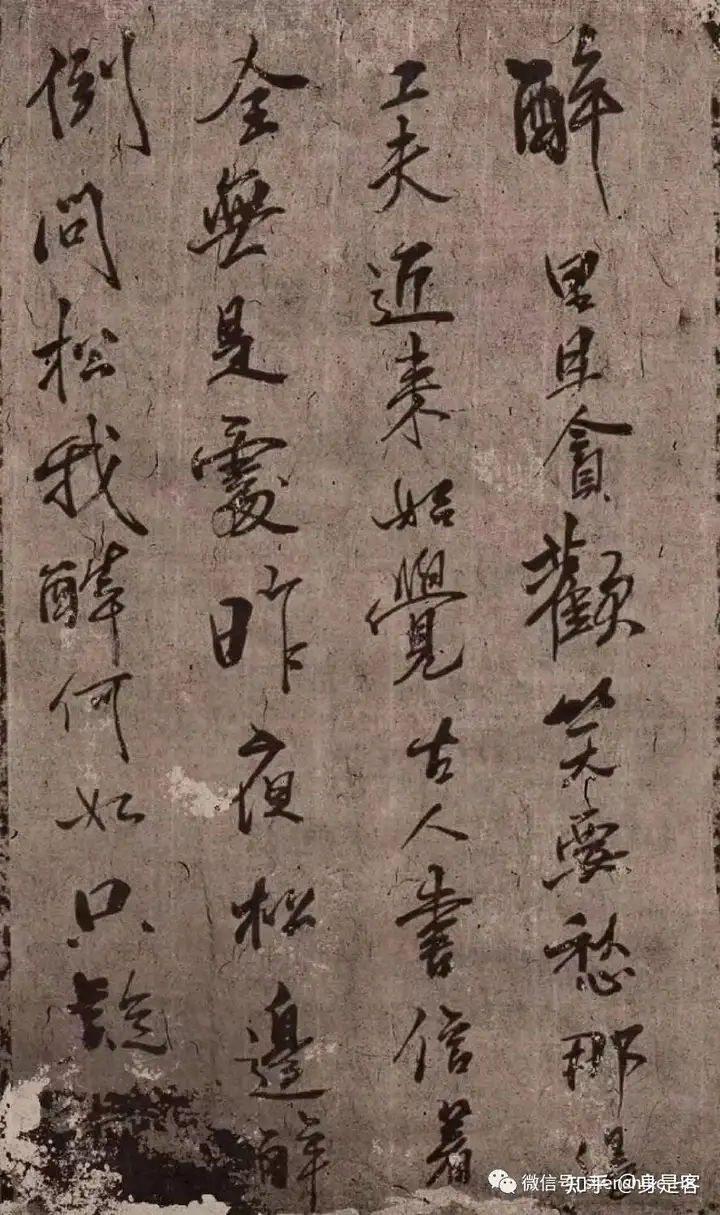 醉里且貪歡笑要愁那得
工夫近来始覺古人書信着
全無是處昨夜松邊醉
倒問松我醉何如只疑
微信号
知乎 @身是客